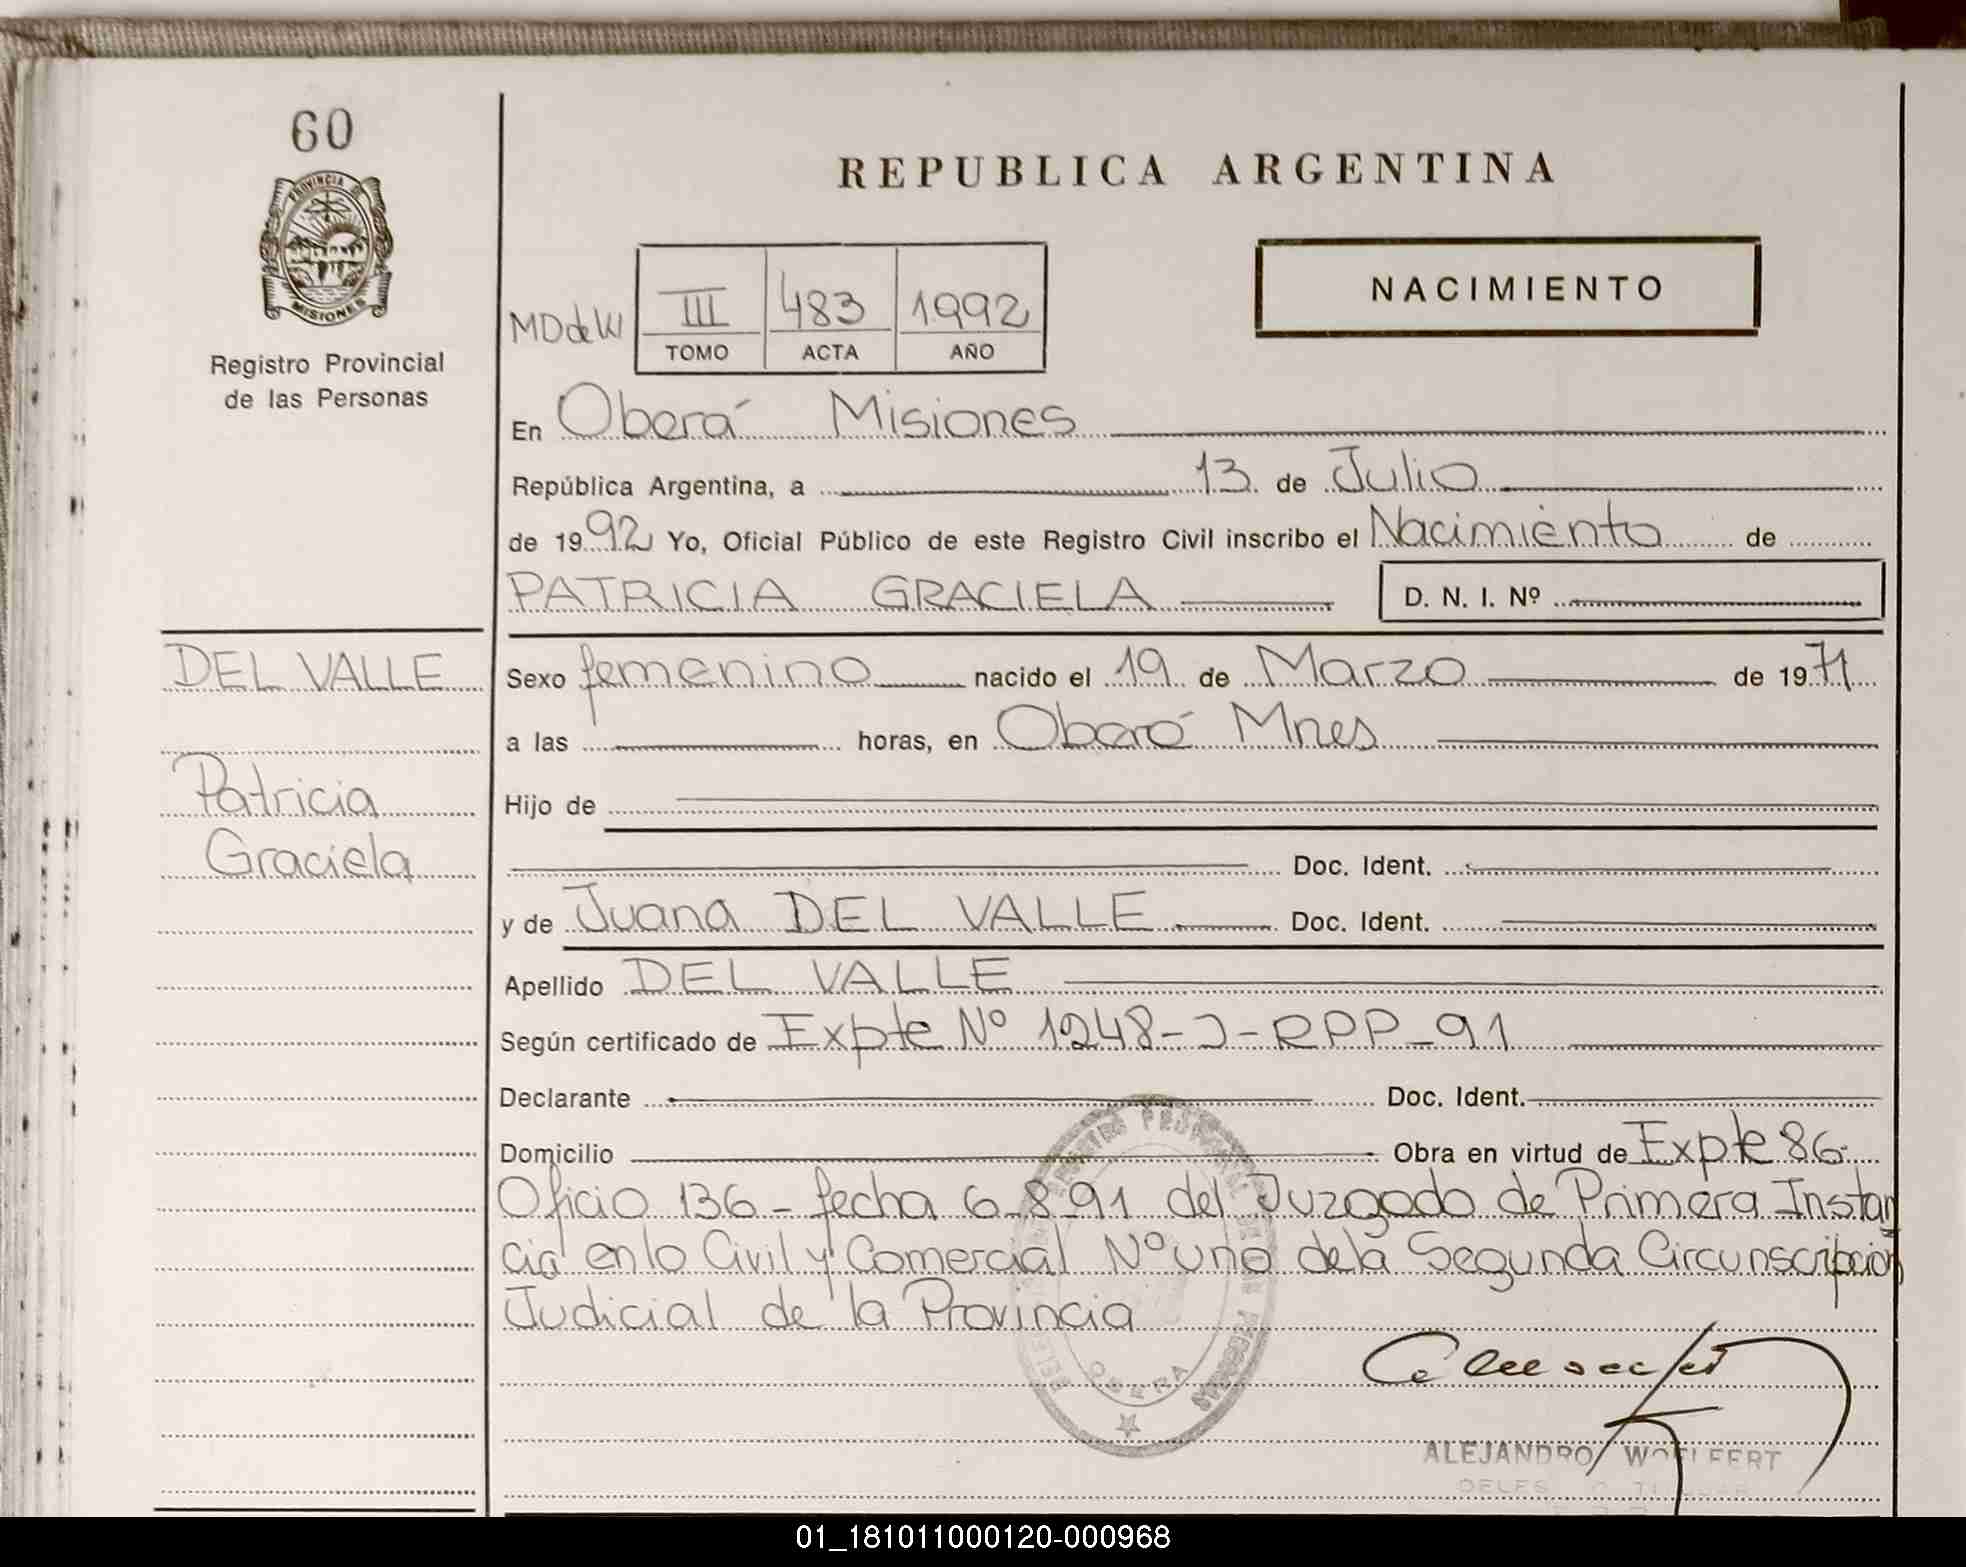 60
PROVINCIA DE
MISIONES
Registro Provincial
de las Personas
REPUBLICA ARGENTINA
NACIMIENTO
MDdeW III 483 1992
TOMO ACTA AÑO
En Oberá Misiones
República Argentina, a 13 de Julio
de 1992 Yo, Oficial Público de este Registro Civil inscribo el Nacimiento de
PATRICIA GRACIELA D. N. I. Nº
DEL VALLE
Patricia
Graciela
Sexo femenino nacido el 19 de Marzo de 1971
a las horas, en Oberá Mnes
Hijo de
Doc. Ident.
y de Juana DEL VALLE Doc. Ident.
Apellido DEL VALLE
Según certificado de Expte Nº 1248-J-RPP-91
Declarante Doc. Ident.
Domicilio Obra en virtud de Expte 86
Oficio 136 - fecha 6-8-91 del Juzgado de Primera Instan
cia en lo Civil y Comercial Nº uno de la Segunda Circunscripcion
Judicial de la Provincia
REGISTRO PROVINCIAL DE LAS PERSONAS
OBERA
ALEJANDRO WOELFERT
01_181011000120-000968